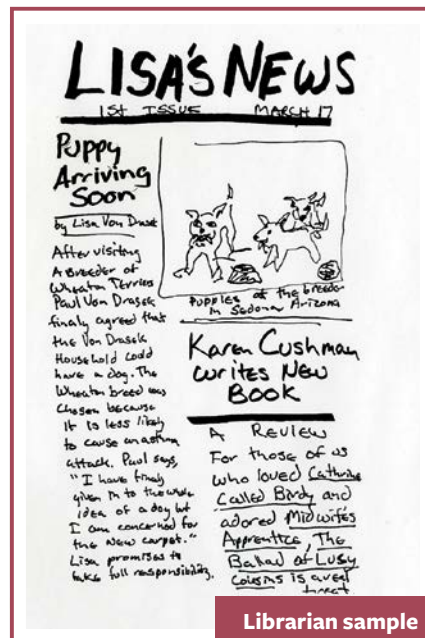 LISA'S NEWS
1St ISSUE MARCH 17
Puppy
Arriving
Soon
by Lisa Von Drasek
After visiting
A Breeder of
Wheaton Terriers
Paul Von Drasek
finaly agreed that
the Von Drasek
Household could
have a dog. The
Wheaton breed was
Chosen because
it is less likely
to cause an asthma
attack. Paul says,
"I have finaly
given in to the whole
idea of a dog but
I am concerned for
the New carpet."
Lisa promises to
take full responsibility.
Puppies at the breeder
in Sedona Arizona
Karen Cushman
writes New
Book
A Review
For those of us
who loved Catherine
Called Birdy and
adored Midwife's
Apprentice, The
Ballad of Lucy
is a
treat
Librarian sample